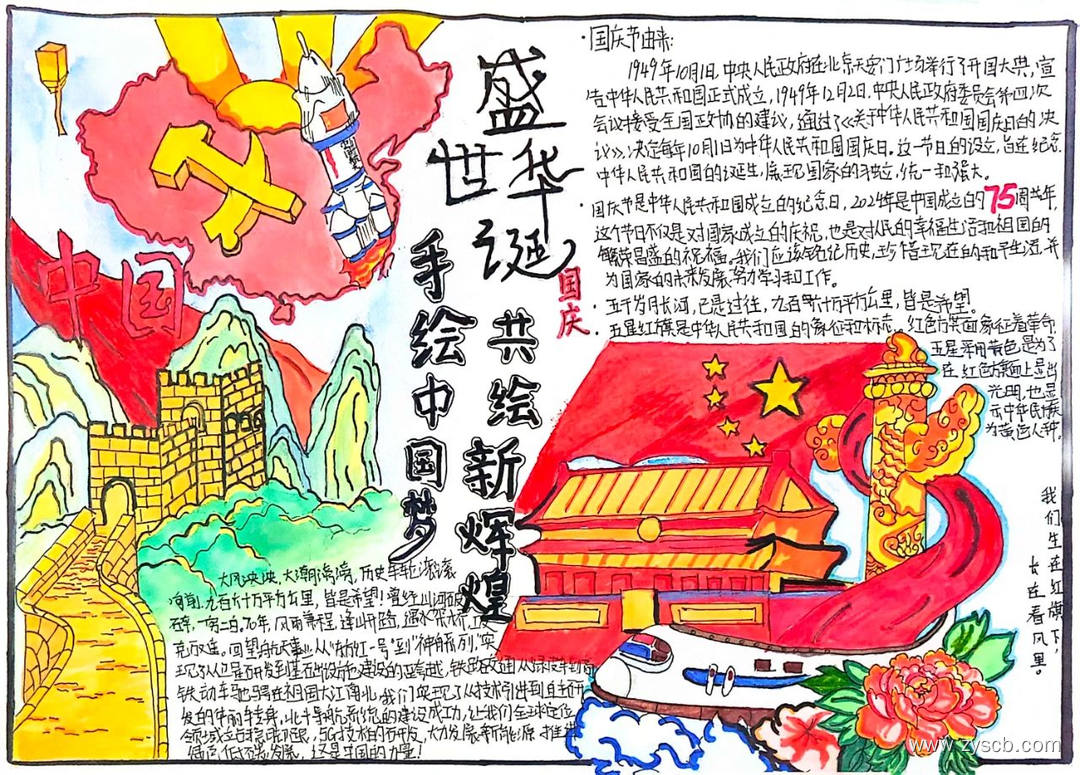 盛
世华
诞
国庆
手绘中国梦
共绘新辉煌
中国
·国庆节由来:
1949年10月1日,中央人民政府在北京天安门广场举行了开国大典,宣
告中华人民共和国正式成立,1949年12月2日,中央人民政府委员会第四次
会议接受全国政协的建议,通过了《关于中华人民共和国国庆日的决
议》,决定每年10月1日为中华人民共和国国庆日。这一节日的设立,旨在纪念
中华人民共和国的诞生,展现国家的独立,统一和强大。
·国庆节是中华人民共和国成立的纪念日,2024年是中国成立的75周年,
这个节日不仅是对国家成立的庆祝,也是对人民的幸福生活和祖国的
繁荣昌盛的祝福。我们应该铭记历史,珍惜现在的和平生活,并
为国家的未来发展,努力学习和工作。
·五千岁月长河,已是过往,九百六十万平方公里,皆是希望!
·五星红旗是中华人民共和国的象征和标志。红色旗面象征着革命
五星采用黄色是为了
在红色旗面上显出
光明,也显
示中华民族
为黄色人种。
我们生在红旗下,
长在春风里。
大风泱泱,大潮滂滂,历史车轮滚滚
向前,九百六十万平方公里,皆是希望!曾经山河破
碎,一穷二白,70年,风雨兼程,逢山开路,遇水架桥,
回望航天事业,从"东方红一号"到"神舟系列",实
现了从卫星研发到基础设施建设的跨越,铁路交通从绿皮到高
铁,动车驰骋在祖国大江南北,我们实现了从技术引进到自主研
发的华丽转身,北斗导航系统的建设成功,让我们全球定位
领域立与稳脚跟,5G技术的研发,大力发展新能源,推
低碳发展,这是中国的力量!
www.zyscb.com